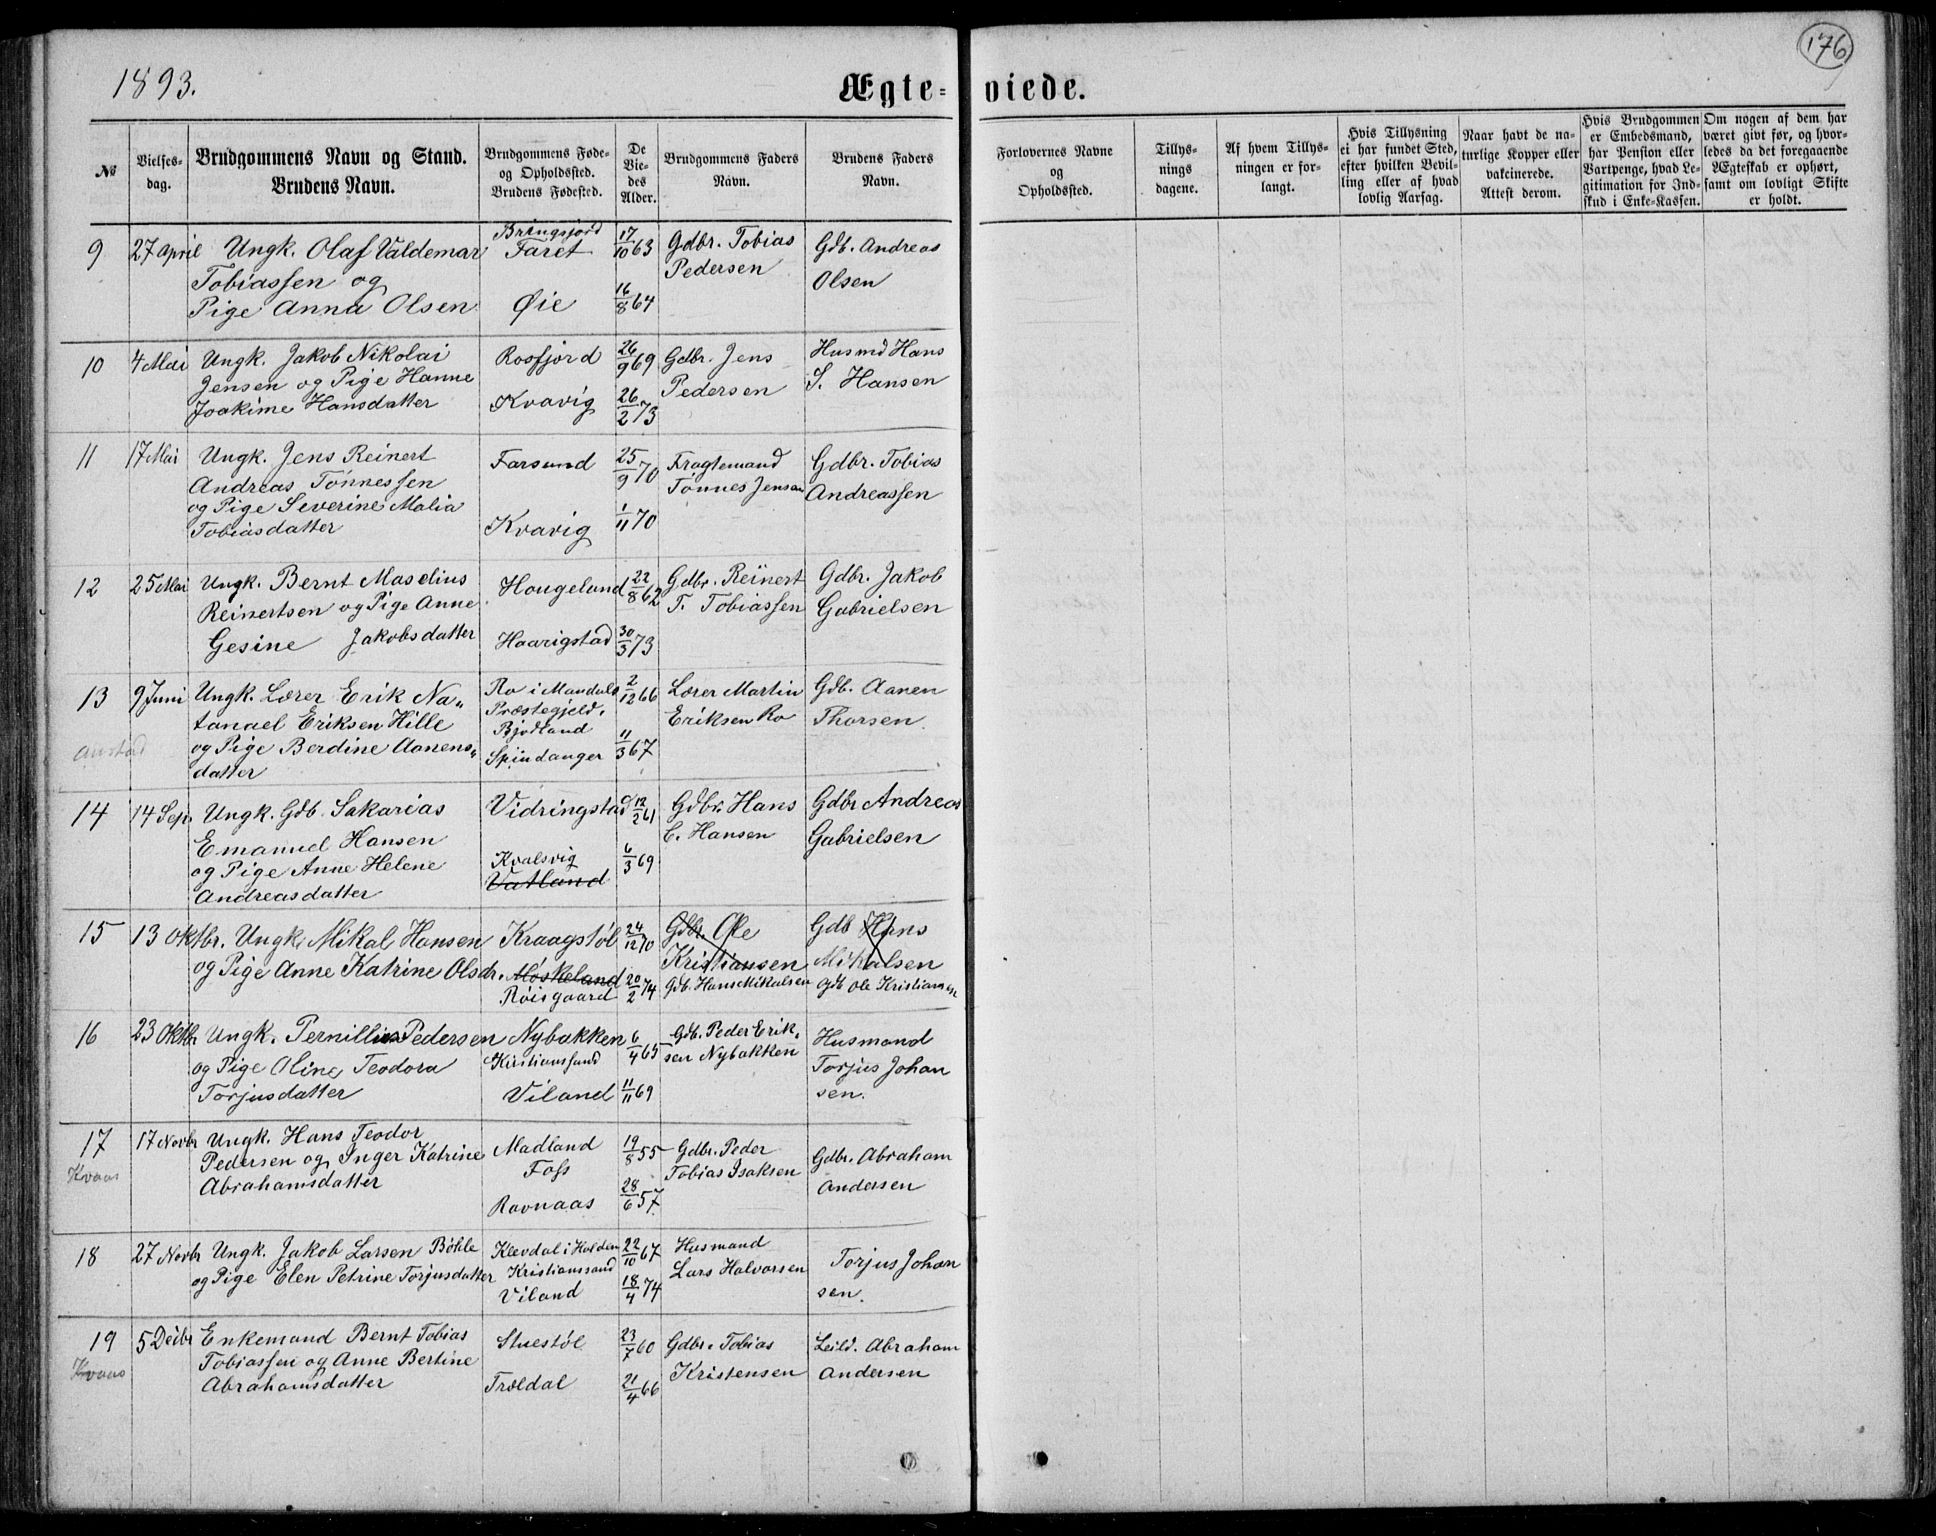 176
1893.
Ægte-viede.
№
Vielses-
dag.
Brudgommens Navn og Stand.
Brudens Navn.
Brudgommens Føde-
og Opholdssted.
Brudens Fødested.
De
Vie-
des
Alder.
Brudgommens Faders
Navn.
Brudens Faders
Navn.
Forlovernes Navne
og
Opholdssted.
Tillys-
nings
dagene.
Af hvem Tillys-
ningen er for-
langt.
Hvis Tillysning
ei har fundet Sted,
efter hvilken Bevil-
ling eller af hvad
lovlig Aarsag.
Naar havt de na-
turlige Kopper eller
vakcinerede.
Attest derom.
Hvis Brudgommen
er Embedsmand,
har Pension eller
Vartpenge, hvad Le-
gitimation for Ind-
skud i Enke-Kassen.
Om nogen af dem har
været givt før, og hvor-
ledes da det foregaaende
Ægteskab er ophørt,
samt om lovligt Skifte
er holdt.
9 27 April Ungk. Olaf Valdemar
Tobiassen og
Pige Anna Olsen
Bringsjord
Faret
Øie
17/10 63
16/8 64
Gdbr. Tobias
Pedersen
Gdb. Andreas
Olsen
10 4 Mai Ungk. Jakob Nikolai
Jensen og Pige Hanne
Joakime Hansdatter
Rosfjord
Kvavig
26/9 69
26/2 73
Gdbr. Jens
Pedersen
Husmd Hans
S. Hansen
11 17 Mai Ungk. Jens Reinert
Andreas Tønnessen
og Pige Severine Malia
Tobiasdatter
Farsund
Kvavig
25/9 70
1/11 70
Fragtemand
Tønnes Jensen
Gdbr. Tobias
Andreassen
12 25 Mai Ungk. Bernt Maselius
Reinertsen og Pige Anne
Gesine Jakobsdatter
Hougeland
Haarigstad
22/8 62
30/3 73
Gdbr. Reinert
T. Tobiassen
Gdbr. Jakob
Gabrielsen
13 9 Juni Ungk. Lærer Erik Na-
tanael Eriksen Hille
og Pige Berdine Aanens-
datter
Ro i Mandals
Præstegjeld.
Bjodland
Spindanger
2/12 66
11/3 67
Lærer Martin
Eriksen Ro
Gdb. Aanen
Thorsen
14 14 Sep. Ungk. Gdb. Sakarias
Emanuel Hansen
og Pige Anne Helene
Andreasdatter
Vidringstad
Kvalsvig
Vatland
12/2 61
6/3 69
Gdbr. Hans
C. Hansen
Gdbr Andreas
Gabrielsen
15 13 Oktbr. Ungk. Mikal Hansen
og Pige Anne Katrine Olsdr.
Kraagstøl
Moskeland
Røisgaard
24/12 70
20/2 74
Gdbr. Ole
Kristiansen
Gdb. Hans Mikalsen
Gdb Hans
Mikalsen
Gdb Ole Kristiansen
16 23 Oktbr Ungk. Pernillius Pedersen
og Pige Oline Teodora
Torjusdatter
Nybakken
Kristianssand
Viland
6/4 65
11/11 69
Gdb. Peder Erik-
sen Nybakken
Husmand
Torjus Johan
sen.
17 17 Novbr Ungk. Hans Teodor
Kvaas
Pedersen og Inger Katrine
Abrahamsdatter
Madland
Foss
Ravnaas
19/8 55
28/6 57
Gdbr. Peder
Tobias Isaksen
Gdbr. Abraham
Andersen
18 27 Novbr Ungk. Jakob Larsen Bøhle
og Pige Elen Petrine Torjusdatter
Klevdal i Holden
Kristianssand
Viland
22/10 67
18/4 74
Husmand
Lars Halvorsen
Torjus Johan
sen.
19 5 Decbr Enkemand Bernt Tobias
Kvaas
Tobiassen og Anne Bertine
Abrahamsdatter
Stuestøl
Trældal
23/7 60
21/4 66
Gdbr. Tobias
Kristensen
Leild. Abraham
Andersen